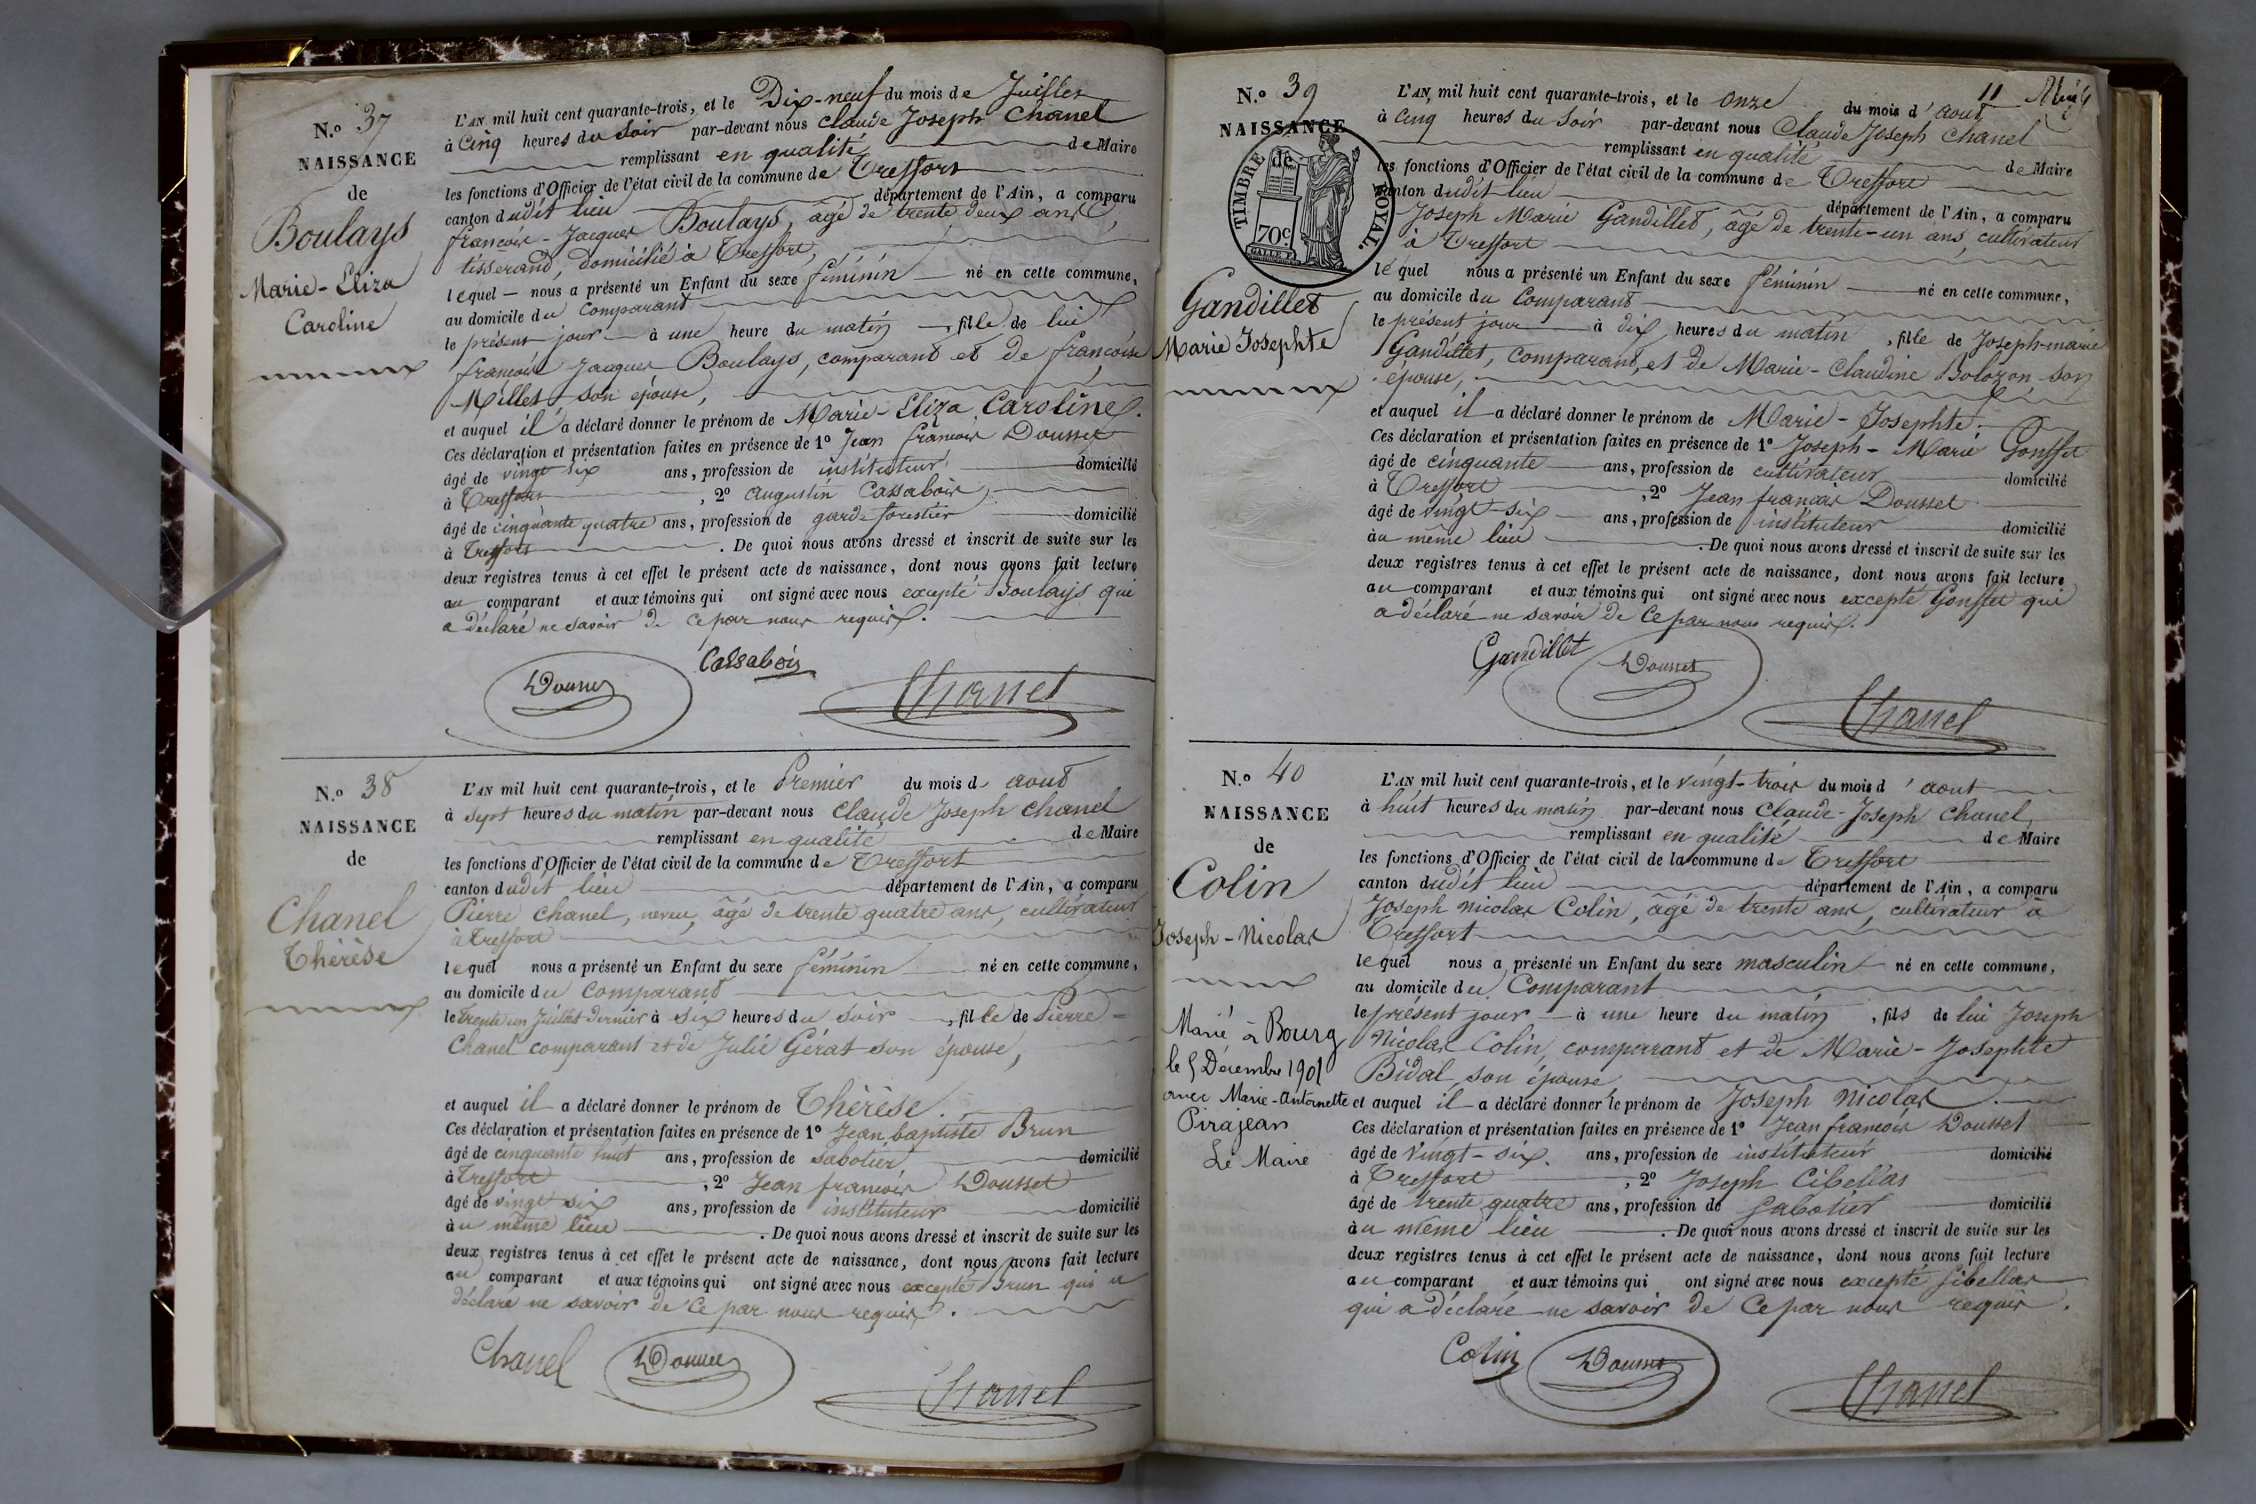 N.º 37
NAISSANCE
de
Boulays
Marie-Eliza
Caroline
L'AN mil huit cent quarante-trois, et le Dix-neuf du mois de Juillet
à Cinq heures du soir par-devant nous Claude Joseph Chanel
remplissant en qualité de Maire
les fonctions d'Officier de l'état civil de la commune de Treffort
canton dudit lieu département de l'Ain, a comparu
françois-Jacques Boulays, âgé de trente deux ans
tisserand, domicilié à Treffort,
lequel nous a présenté un Enfant du sexe féminin né en cette commune,
au domicile du Comparant
le présent jour à une heure du matin, fille de lui
françois Jacques Boulays, comparant et de françoise
Millet son épouse,
et auquel il a déclaré donner le prénom de Marie-Eliza Caroline.
Ces déclaration et présentation faites en présence de 1º Jean françois Dousset
âgé de vingt six ans, profession de instituteur domicilié
à Treffort, 2º augustin Cassabois,
âgé de cinquante quatre ans, profession de garde forestier domicilié
à Treffort. De quoi nous avons dressé et inscrit de suite sur les
deux registres tenus à cet effet le présent acte de naissance, dont nous avons fait lecture
au comparant et aux témoins qui ont signé avec nous excepté Boulays qui
a déclaré ne savoir de ce par nous requis.
Cassabois
Dousset
Chanel
N.º 38
NAISSANCE
de
Chanel
Thérèse
L'AN mil huit cent quarante-trois, et le Premier du mois d aout
à sept heures du matin par-devant nous Claude Joseph Chanel
remplissant en qualité de Maire
les fonctions d'Officier de l'état civil de la commune de Treffort
canton dudit lieu département de l'Ain, a comparu
Pierre Chanel, neveu, âgé de trente quatre ans, cultivateur
à Treffort
lequel nous a présenté un Enfant du sexe féminin né en cette commune,
au domicile du comparant
le trente un Juillet dernier à six heures du soir, fille de Pierre
Chanel comparant et de Julie Gérat son épouse,
et auquel il a déclaré donner le prénom de Thérèse.
Ces déclaration et présentation faites en présence de 1º Jean baptiste Brun
âgé de cinquante huit ans, profession de sabotier domicilié
à Treffort, 2º Jean françois Dousset
âgé de vingt six ans, profession de instituteur domicilié
au même lieu. De quoi nous avons dressé et inscrit de suite sur les
deux registres tenus à cet effet le présent acte de naissance, dont nous avons fait lecture
au comparant et aux témoins qui ont signé avec nous excepté Brun qui a
déclaré ne savoir de ce par nous requis.
Chanel
Dousset
Chanel
11
N.º 39
NAISSANCE
TIMBRE ROYAL.
de
70c.
Gandillet
Marie Josephte
L'AN, mil huit cent quarante-trois, et le onze du mois d'aout
à Cinq heures du Soir par-devant nous Claude Joseph Chanel
remplissant en qualité de Maire
les fonctions d'Officier de l'état civil de la commune de Treffort
canton dudit lieu département de l'Ain, a comparu
Joseph Marie Gandillet, âgé de trente-un ans, cultivateur
à Treffort
lequel nous a présenté un Enfant du sexe féminin né en cette commune,
au domicile du Comparant
le présent jour à dix heures du matin, fille de Joseph-marie
Gandillet, comparant, et de Marie-Claudine Bolozon son
épouse,
et auquel il a déclaré donner le prénom de Marie-Josephte.
Ces déclaration et présentation faites en présence de 1º Joseph-Marie Gonsset
âgé de cinquante ans, profession de cultivateur domicilié
à Treffort, 2º Jean francois Dousset
âgé de vingt-six ans, profession de instituteur domicilié
au même lieu. De quoi nous avons dressé et inscrit de suite sur les
deux registres tenus à cet effet le présent acte de naissance, dont nous avons fait lecture
au comparant et aux témoins qui ont signé avec nous excepté Gonsset qui
a déclaré ne savoir de ce par nous requis.
Gandillet
Dousset
Chanel
N.º 40
NAISSANCE
de
Colin
Joseph-Nicolas
Marié à Bourg
le 5 Décembre 1901
avec Marie-Antoinette
Pirajean
Le Maire
L'AN mil huit cent quarante-trois, et le vingt-trois du mois d'aout
à huit heures du matin par-devant nous Claude-Joseph Chanel
remplissant en qualité de Maire
les fonctions d'Officier de l'état civil de la commune de Treffort
canton dudit lieu département de l'Ain, a comparu
Joseph nicolas Colin, âgé de trente ans, cultivateur à
Treffort
lequel nous a présenté un Enfant du sexe masculin né en cette commune,
au domicile du Comparant
le présent jour à une heure du matin, fils de lui Joseph
Nicolas Colin, comparant et de Marie-Josephte
Bidal son épouse,
et auquel il a déclaré donner le prénom de Joseph Nicolas.
Ces déclaration et présentation faites en présence de 1º Jean françois Dousset
âgé de vingt-six. ans, profession de instituteur domicilié
à Treffort, 2º Joseph Cibellas
âgé de trente quatre ans, profession de Sabotier domicilié
au même lieu. De quoi nous avons dressé et inscrit de suite sur les
deux registres tenus à cet effet le présent acte de naissance, dont nous avons fait lecture
au comparant et aux témoins qui ont signé avec nous excepté Sibellas
qui a déclaré ne savoir de ce par nous requis.
Colin
Dousset
Chanel